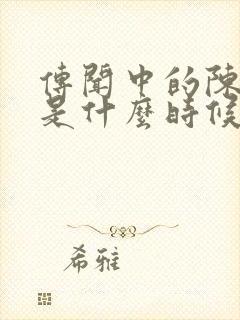 傳聞中的陳
是什麼時候
希雅